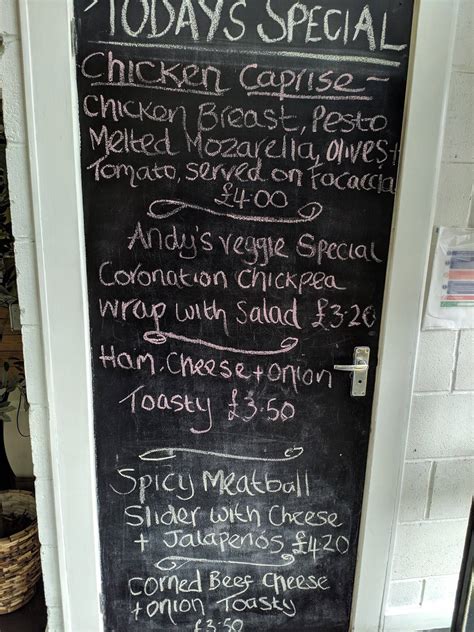 TODAYS SPECIAL
Chicken Caprise ~
Chicken Breast, Pesto
Melted Mozarella, olives +
Tomato, served on Focaccia
£4.00
Andy's veggie Special
Coronation Chickpea
Wrap with Salad £3.20
Ham, Cheese + onion
Toasty £3.50
Spicy Meatball
Slider with Cheese
+ Jalapenos £4.20
Corned Beef Cheese
+ onion Toasty
£3.50